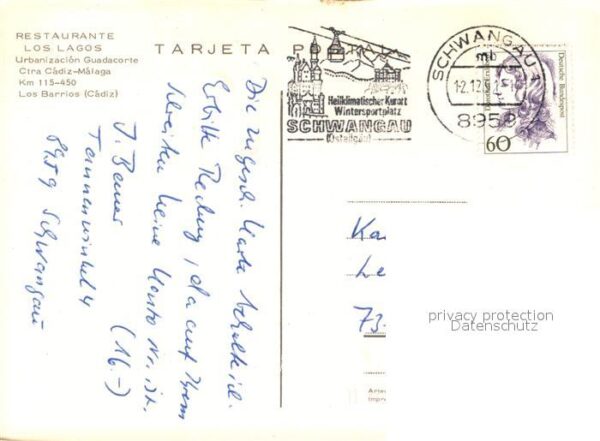 RESTAURANTE
LOS LAGOS
Urbanización Guadacorte
Ctra Cádiz-Málaga
Km 115-450
Los Barrios (Cádiz)
TARJETA POSTAL
Heilklimatischer Kurort
Wintersportplatz
SCHWANGAU
(Ostallgäu)
SCHWANGAU 1
mb
12.12.9
8959
Deutsche Bundespost
60
Die zugesch. Karte behalte ich.
Erbitte Rechnung, da auf Ihrem
Schreiben keine Konto Nr. ist.
J.
Tannenwinkel 4 (16.-)
8959 Schwangau
Ka
Le
73.
privacy protection
Datenschutz